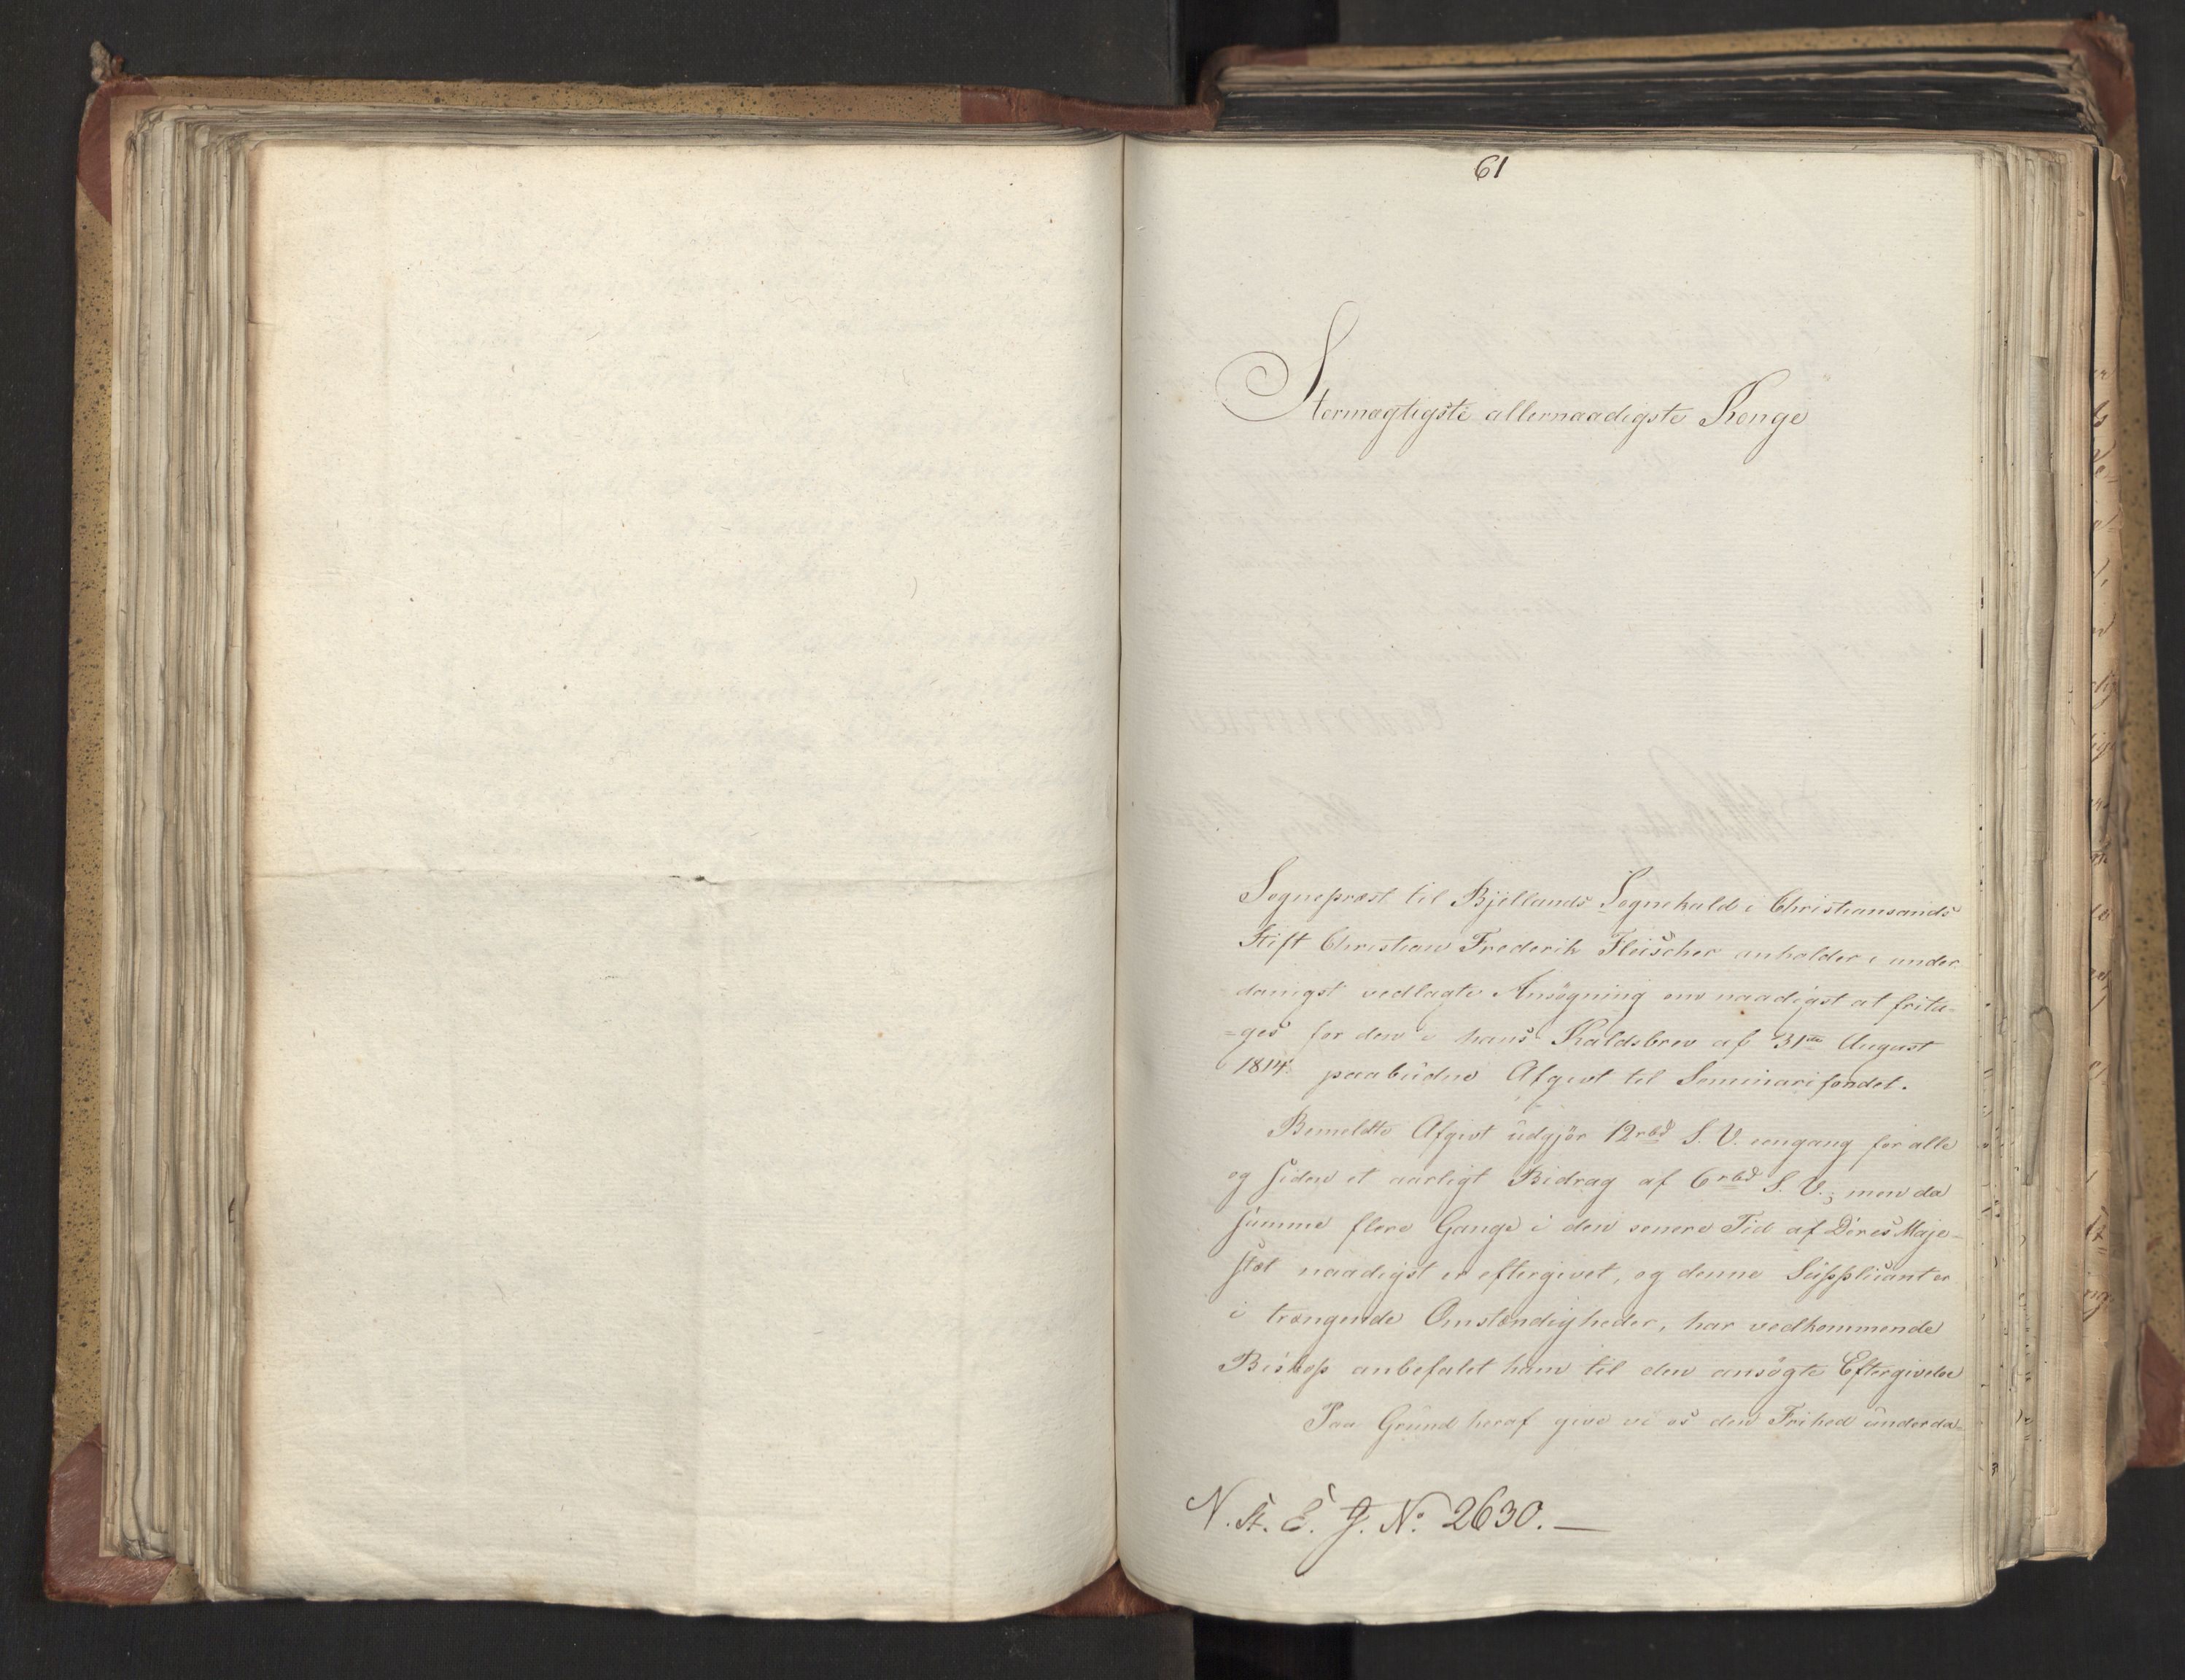 61
Stormægtigste allernaadigste Konge
Sognepræst til Bjellands Sognekald i Christiansands
Stift Christian Frederik Fleischer anholder i under
danigst vedlagte Ansøgning om naadigst at frita-
=ges for den i hans Kaldsbrev af 31te August
1814 paabudne Afgivt til Seminarifondet.
Bemeldte Afgivt udgjør 12 rbd S. V. eengang for alle
og siden et aarligt Bidrag af 6 rbd S. V.; men da
samme flere Gange i den senere Tid af Deres Maje-
stæt naadigst er eftergivet, og denne Supplicant er
i trængende Omstændigheder, har vedkommende
Biskop anbefalet ham til den ansøgte Eftergivelse
Paa Grund heraf give vi os den Frihed underda-
N. St. E. J. No. 2630. —